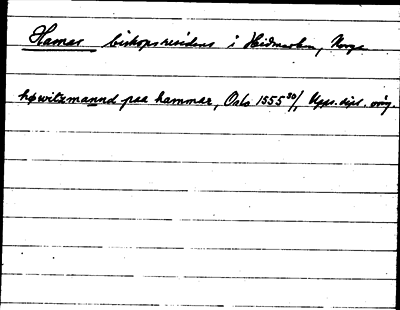 Hamar biskopsresidens i Hedmarken, Norge
høwitzmannd paa hammar, Oslo 1555 30/1 Upps. dipl. orig.